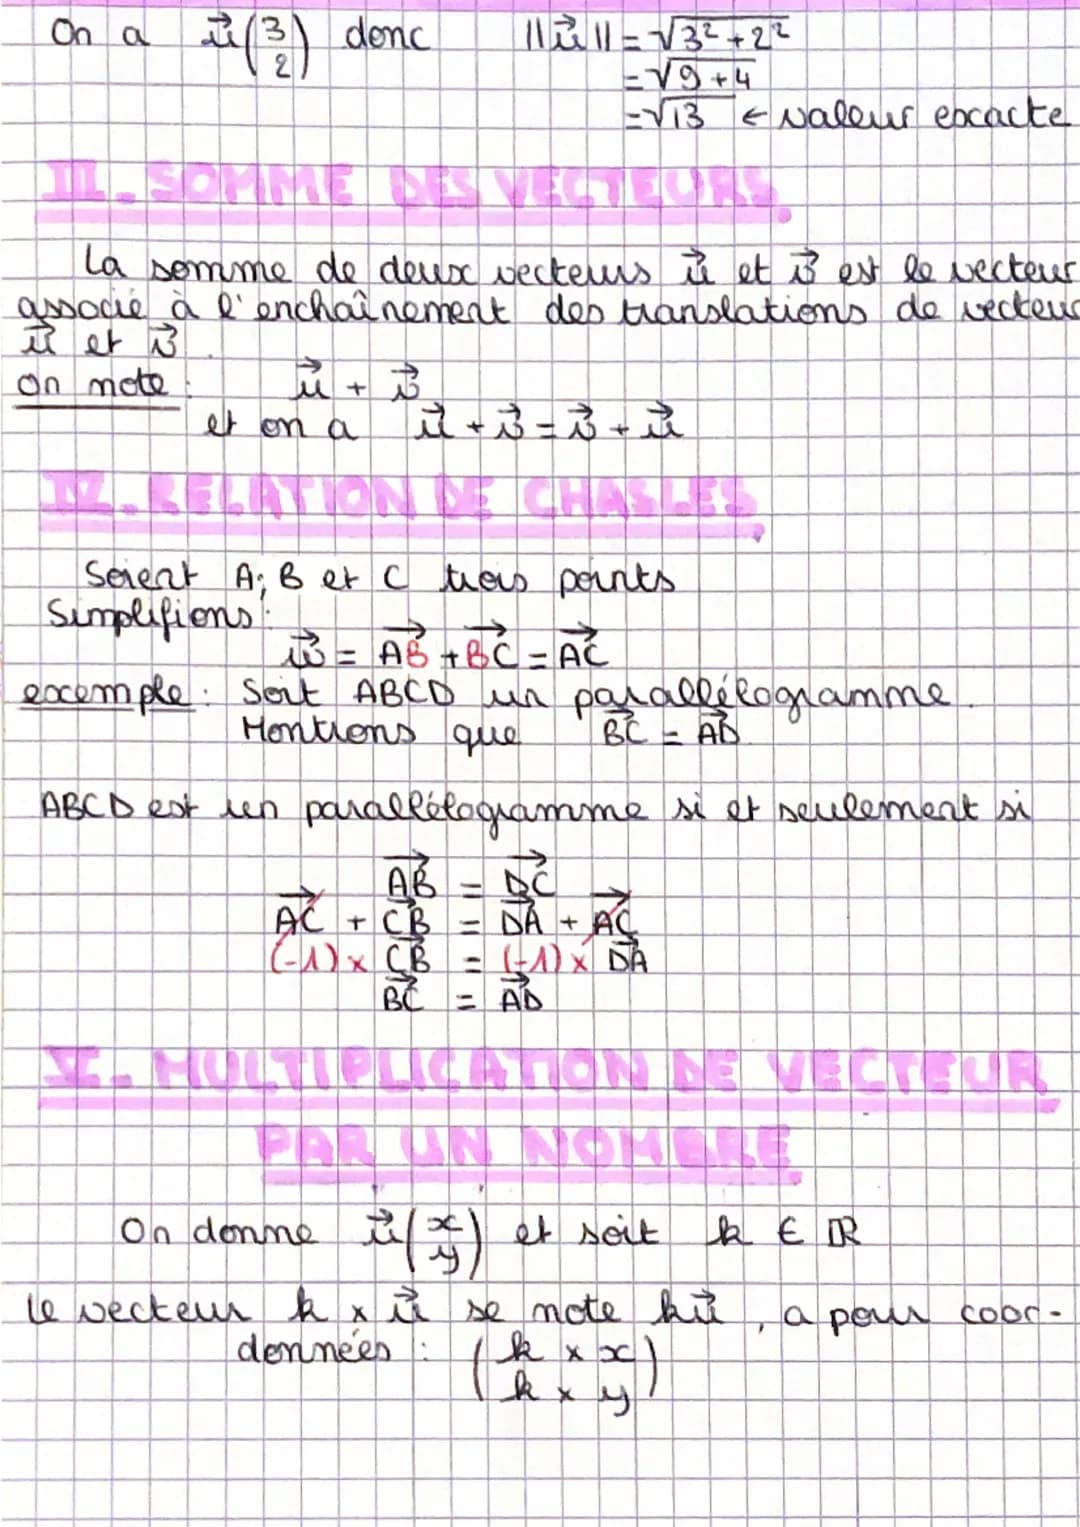 On a u⃗(3 2) donc ||u⃗|| = √3² + 2²
= √9 + 4
= √13 ← valeur exacte
III. SOMME DES VECTEURS
La somme de deux vecteurs u⃗ et v⃗ est le vecteur
associé à l'enchaînement des translations de vecteurs
u⃗ et v⃗.
On note : u⃗ + v⃗
et on a u⃗ + v⃗ = v⃗ + u⃗
IV. RELATION DE CHASLES
Soient A; B et C trois points
Simplifions :
w⃗ = AB⃗ + BC⃗ = AC⃗
exemple : Soit ABCD un parallélogramme.
Montrons que BC⃗ = AD⃗.
ABCD est un parallélogramme si et seulement si
AB⃗ = DC⃗
AC⃗ + CB⃗ = DA⃗ + AC⃗
(-1) × CB⃗ = (-1) × DA⃗
BC⃗ = AD⃗
V. MULTIPLICATION DE VECTEUR
PAR UN NOMBRE
On donne u⃗(x y) et soit k ∈ ℝ
le vecteur k × u⃗ se note ku⃗, a pour coor-
données : (k × x
k × y)